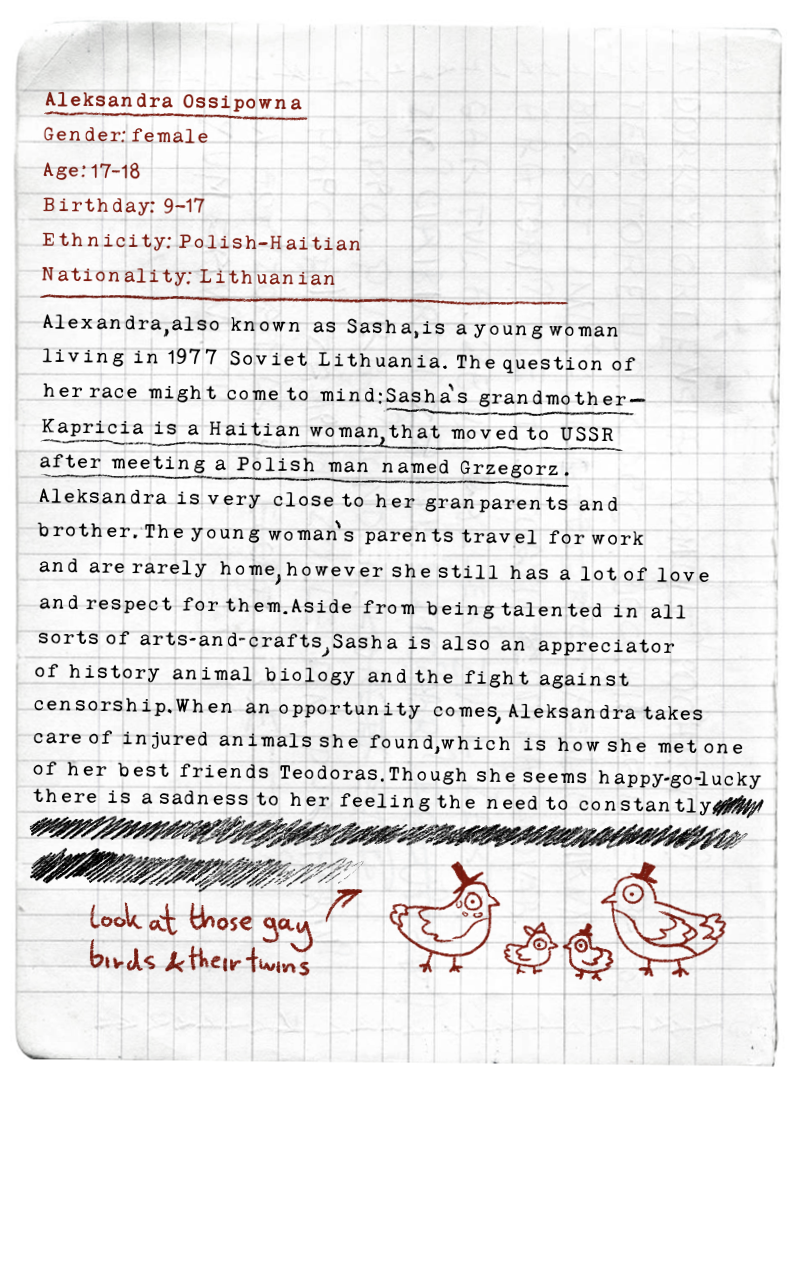 Aleksandra Ossipowna
Gender: female
Age: 17-18
Birthday: 9-17
Ethnicity: Polish-Haitian
Nationality: Lithuanian
Alexandra, also known as Sasha, is a young woman
living in 1977 Soviet Lithuania. The question of
her race might come to mind: Sasha's grandmother-
Kapricia is a Haitian woman, that moved to USSR
after meeting a Polish man named Grzegorz.
Aleksandra is very close to her granparents and
brother. The young woman's parents travel for work
and are rarely home, however she still has a lot of love
and respect for them. Aside from being talented in all
sorts of arts-and-crafts, Sasha is also an appreciator
of history animal biology and the fight against
censorship. When an opportunity comes, Aleksandra takes
care of injured animals she found, which is how she met one
of her best friends Teodoras. Though she seems happy-go-lucky
there is a sadness to her feeling the need to constantly
look at those gay
birds & their twins